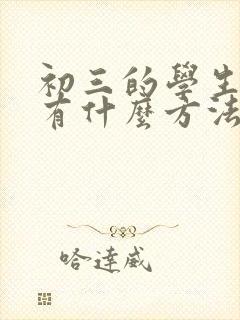 初三的學生
有什麼方法
哈達威